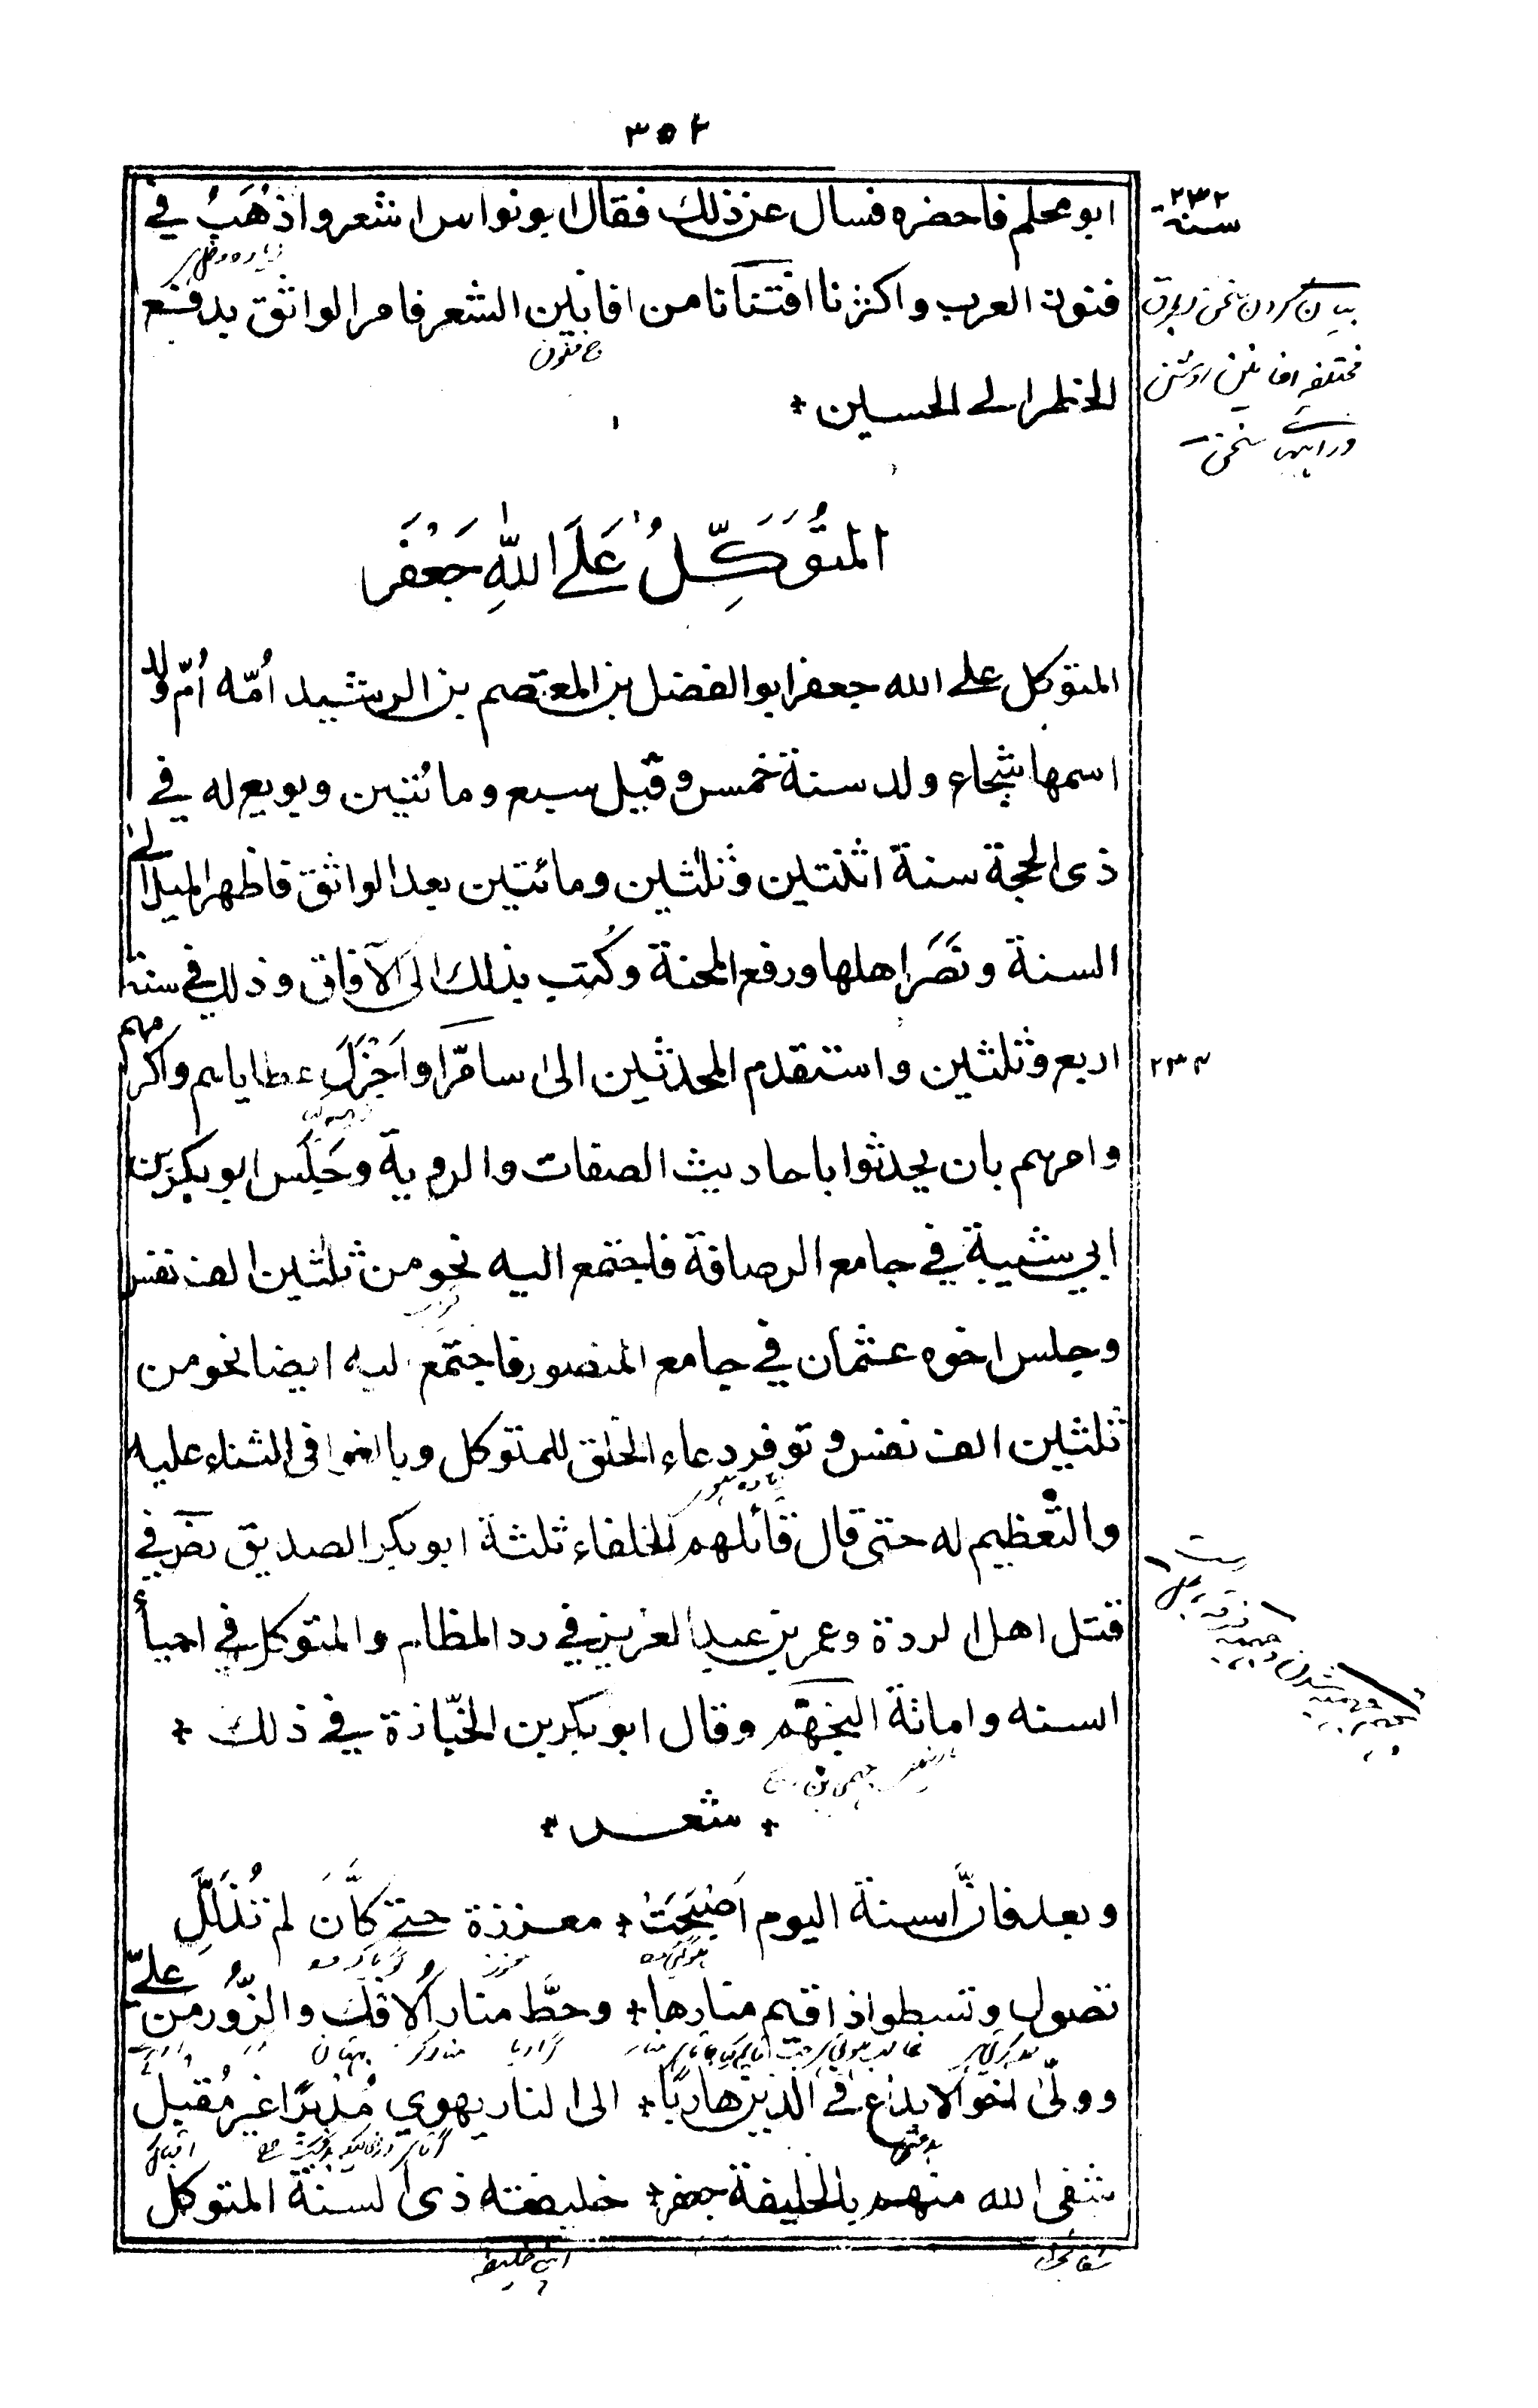 ٣٥٢
ابو محلم فاحضره فسال عن ذلك فقال ابو نواس اشعر واذهَبُ في
فنون العرب واكثرنا افتنانا من افانين الشعر فامر الواثق بدفع
الخطر الى الحسين *
المتوَكِّلُ عَلَے اللّٰهِ جَعْفَر
المتوكل علے الله جعفر ابو الفضل بن المعتصم بن الرشيد اُمّه اُمّ ولد
اسمها شجاع ولد سنة خمس وقيل سبع ومائتين وبويع له في
ذى الحجة سنة اثنتين وثلثين ومائتين بعد الواثق فاظهر الميل الى
السنة ونَصَرَ اهلها ورفع المحنة وكُتِب بذلك الى الآفاق وذلك في سنة
اربع وثلثين واستقدم المحدثين الى سامَرّا واَجْزَلَ عطاياهم واكرمهم
وامرهم بان يحدثوا باحاديث الصفات والروية وجَلَسَ ابو بكر بن
ابي شيبة في جامع الرصافة فاجتمع اليه نحو من ثلثين الف نفس
وجلس اخوه عثمان في جامع المنصور فاجتمع ليه ايضا نحو من
ثلثين الف نفس وتوفر دعاء الخلق للمتوكل وبالغوا فى الثناء عليه
والتعظيم له حتى قال قائلهم الخلفاء ثلثة ابو بكر الصديق رض في
قتل اهل الردة وعمر بن عبد العزيز في رد المظالم والمتوكل في احياء
السنه واماتة التجهّم وقال ابو بكر بن الخبّازة في ذلك *
* شعر *
وبعد فانَّ السنة اليوم اَصْبَحَتْ * معززة حتى كَاَنَّ لم تُذَلَّلِ
تصول وتسطو اذ اقيم منارها * وحطَّ منار الافك والزُّور من عَلِ
وولّى اخو الابداع في الدين هاربًا * الى النار يهوي مُدْبِرًا غير مُقْبِل
شفى الله منهم بالخليفة جعفر * خليفته ذى السنة المتوكل
٢٣٢
سنة
٢٣٤